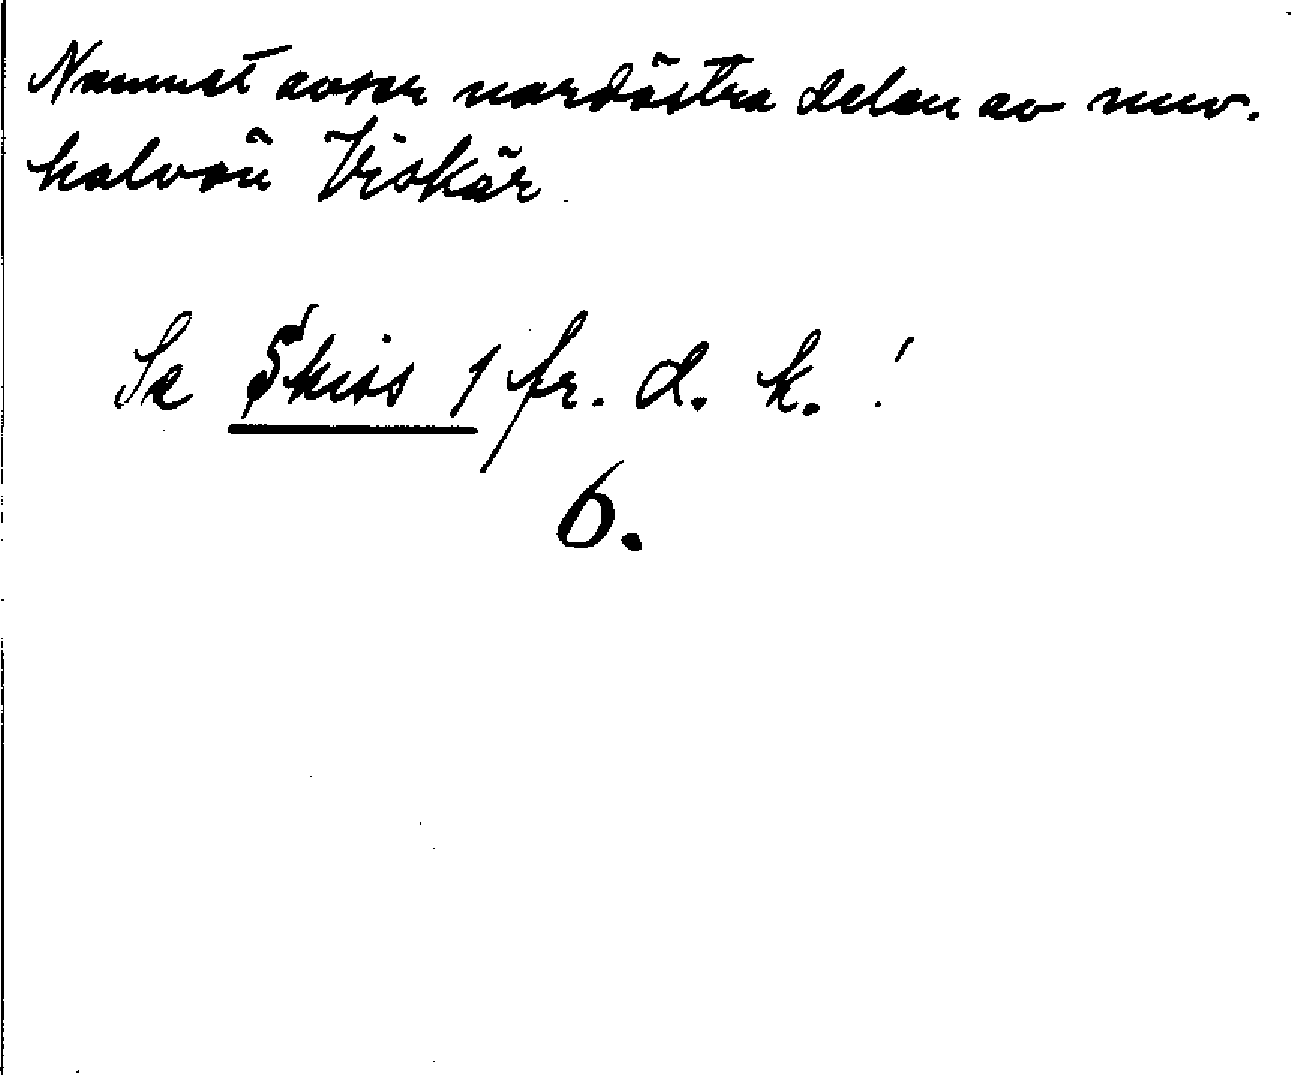 Namnet avser nordöstra delen av nuv.
halvön Viskär.
Se Skiss 1 fr. d. k.!
6.